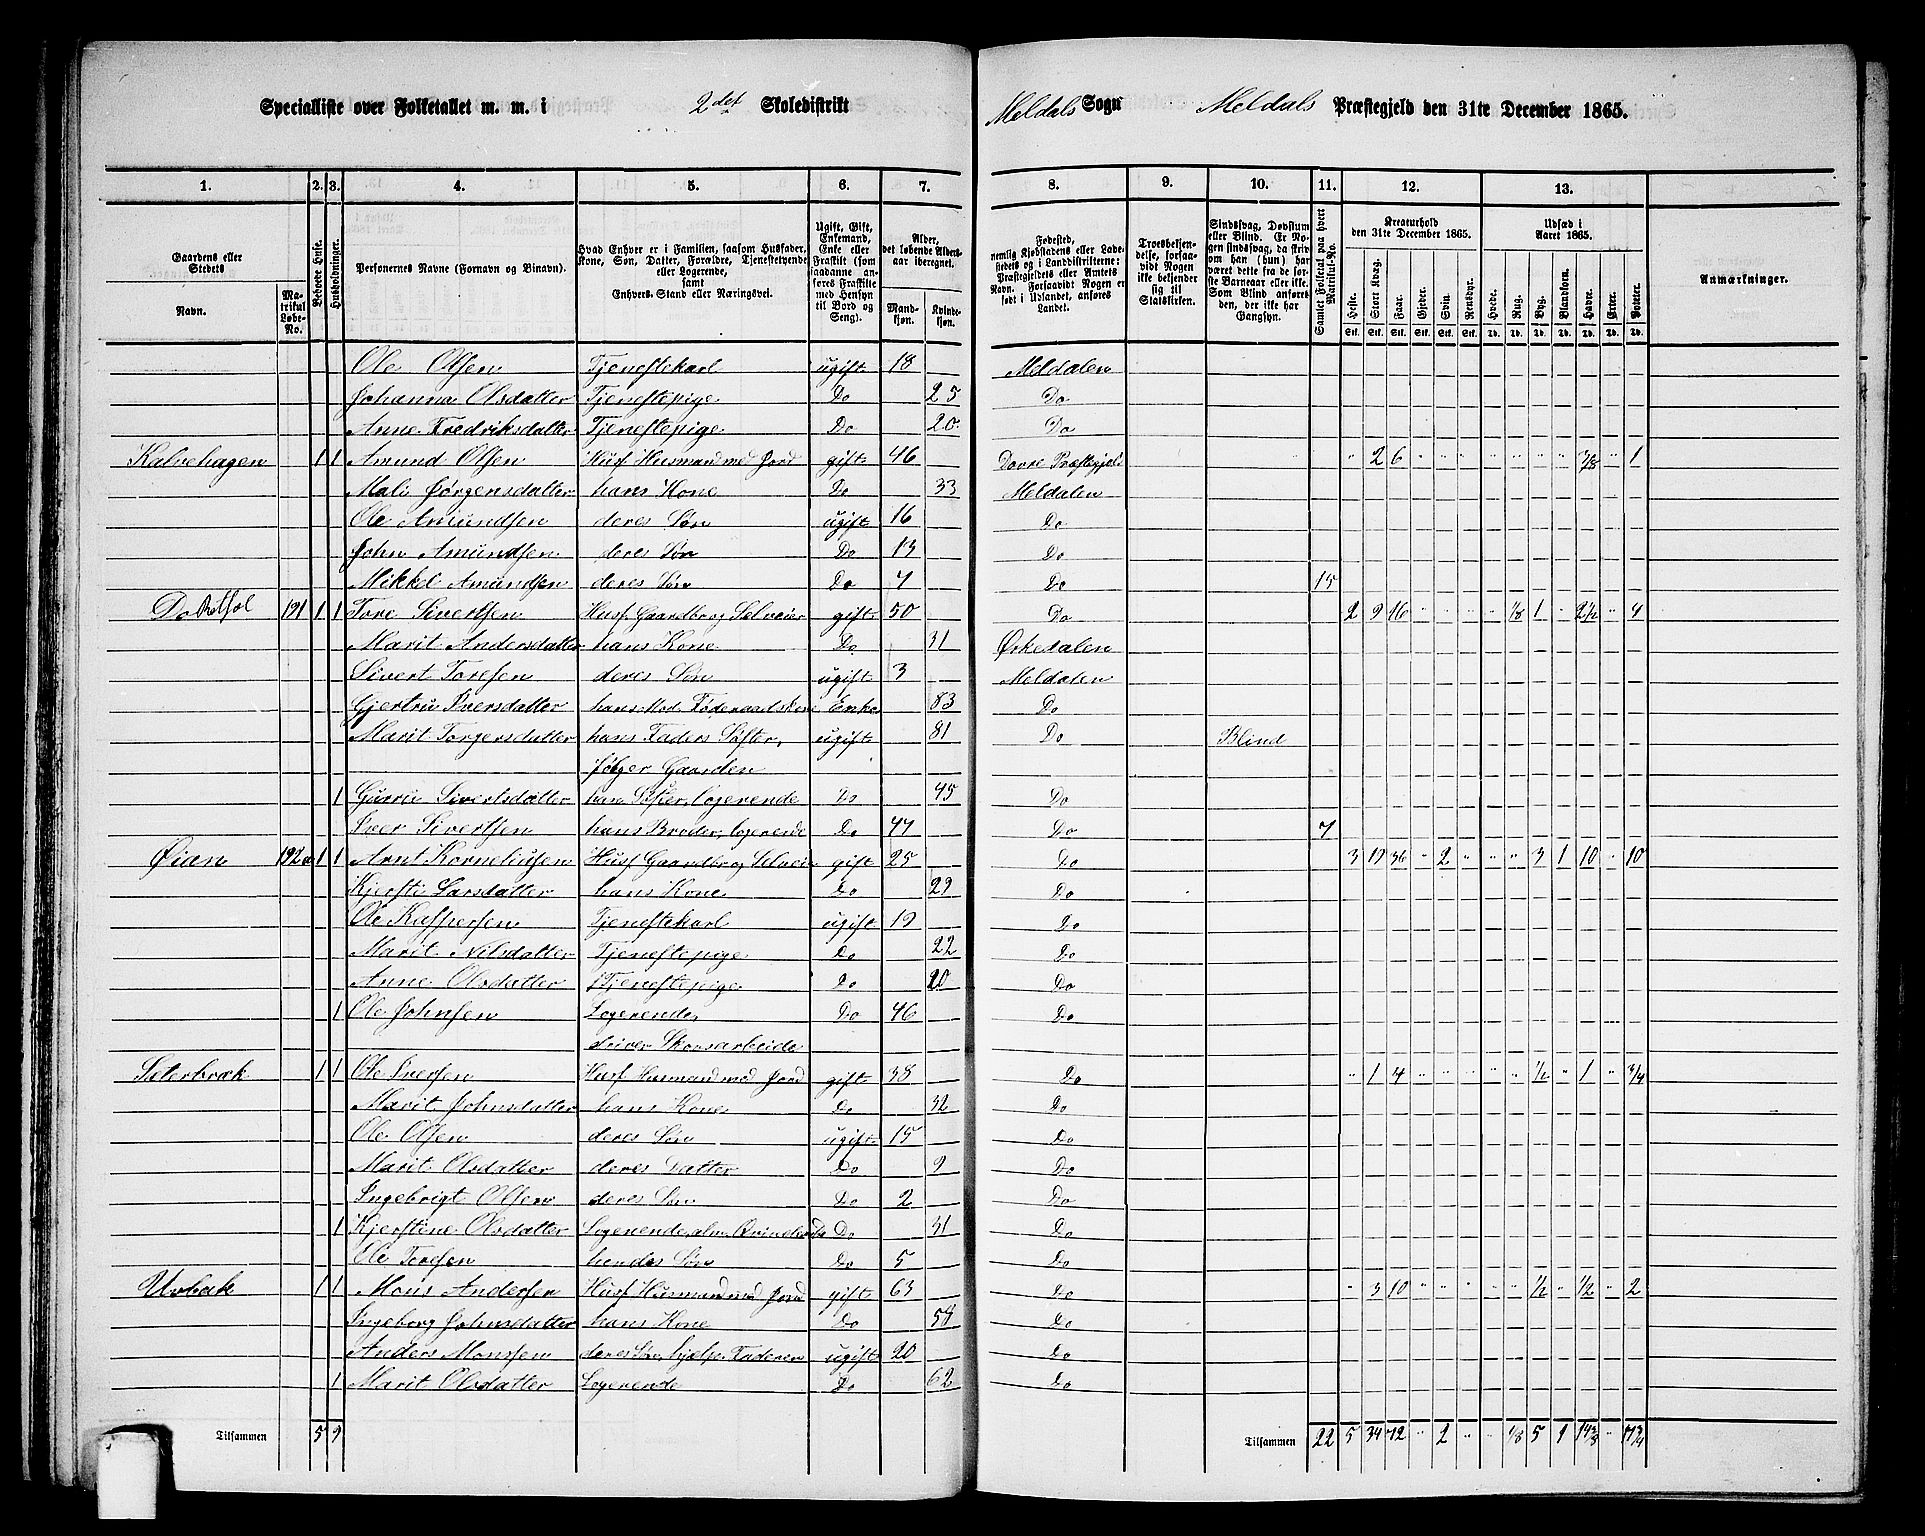 Specialliste over Folketallet m. m. i 2det Skoledistrikt Meldals Sogn Meldals Præstegjeld den 31te December 1865.
1. 2. 3. 4. 5. 6. 7. 8. 9. 10. 11. 12. 13.
Gaardens eller Stedets Navn. Matrikul Løbe-No. Beboede Huse. Husholdninger. Personernes Navne (Fornavn og Binavn). Hvad Enhver er i Familien, saasom Husfader, Kone, Søn, Datter, Forældre, Tjenestetyende eller Logerende, samt Enhvers Stand eller Næringsvei. Ugift, Gift, Enkemand, Enke eller Fraskilt (som saadanne anføres Fraskilte med Hensyn til Bord og Seng). Alder, det løbende Aldersaar iberegnet. Mandkjøn. Kvindekjøn. Fødested, nemlig Kjøbstadens eller Ladestedets og i Landdistrikterne: Præstegjeldets eller Amtets Navn. Forsaavidt Nogen er født i Udlandet, anføres Landet. Troesbekjendelse, forsaavidt Nogen ikke bekjender sig til Statskirken. Sindssvag, Døvstum eller Blind. Er Nogen sindssvag, da skrives om han (hun) har været dette fra de første Barneaar eller ikke. Som Blind anføres den, der ikke har Gangsyn. Samlet Folketal paa hvert Matrikul-No. Kreaturhold den 31te December 1865. Heste. Stort Kvæg. Faar. Gjeder. Svin. Rensdyr. Udsæd i Aaret 1865. Hvede. Rug. Byg. Blandkorn. Havre. Erter. Poteter. Anmærkninger.
Ole Olsen Tjenestekarl ugift 18 Meldalen
Johanna Olsdatter Tjenestepige Do 25 Do
Anne Fredriksdatter Tjenestepige Do 20 Do
Kalvehagen 1 1 Amund Olsen Husf Husmand med Jord gift 46 Dovre Præstegjeld " 2 6 " " " " " " " 3/8 " 1
Mali Jørgensdatter hans Kone Do 33 Meldalen
Ole Amundsen deres Søn ugift 16 Do
John Amundsen deres Søn Do 13 Do
Mikkel Amundsen deres Søn Do 7 Do 15
191 1 1 Tore Sivertsen Husf Gaardbr og Selveier gift 50 Do 2 9 16 " " " " 1/8 1 " 2 1/2 " 4
Marit Andersdatter hans Kone Do 31 Ørkedalen
Sivert Toresen deres Søn ugift 3 Meldalen
Gjertru Iversdatter hans Mod. Føderaadskone Enke 83 Do
Marit Torgersdatter hans Faders Søster, ugift 81 Do Blind
følger Gaarden
1 Gurru Sivertsdatter hans Søster, logerende Do 45 Do
Iver Sivertsen hans Broder, logerende Do 47 Do 7
Øian 192a 1 1 Arnt Korneliusen Husf Gaardbr og Selveier gift 25 Do 3 19 36 " 2 " " " 3 1 10 " 10
Kjersti Larsdatter hans Kone Do 29 Do
Ole Kaspersen Tjenestekarl ugift 19 Do
Marit Nilsdatter Tjenestepige Do 22 Do
Anne Olsdatter Tjenestepige Do 20 Do
1 Ole Johnsen Logerende, Do 46 Do
driver Skovsarbeide
Sæterbræk 1 1 Ole Iversen Husf Husmand med Jord gift 38 Do " 1 4 " " " " " 1/2 " 1 " 3/4
Marit Johnsdatter hans Kone Do 32 Do
Ole Olsen deres Søn ugift 15 Do
Marit Olsdatter deres Datter Do 9 Do
Ingebrigt Olsen deres Søn Do 2 Do
1 Kjerstine Olsdatter Logerende, alm Do 31 Do
Ole Toresen hendes Søn Do 5 Do
1 1 Mons Andersen Husf Husmand med Jord gift 63 Do " 3 10 " " " " " 1/2 " 1/2 " 2
Ingeborg Johnsdatter hans Kone Do 58 Do
Anders Monsen deres Søn, hjælp. Faderen ugift 20 Do
1 Marit Olsdatter Logerende Do 62 Do
Tilsammen 5 9 Tilsammen 22 5 34 72 " 2 " " 1/8 5 1 14 3/8 " 17 3/4